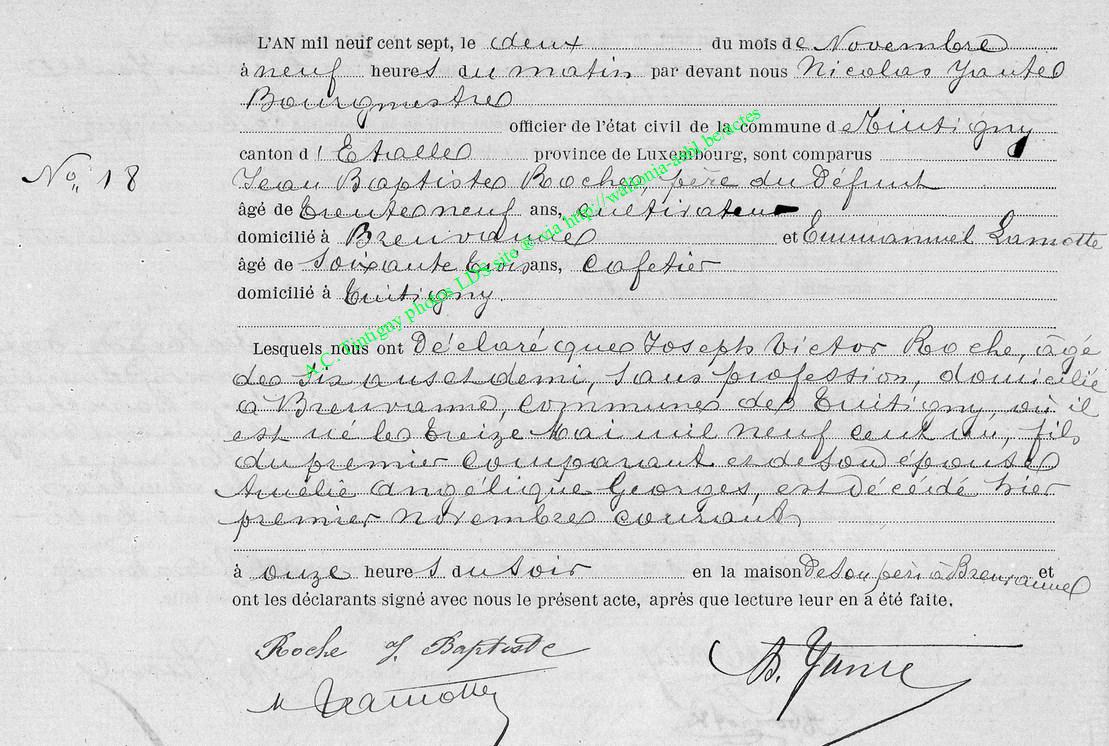 L'AN mil neuf cent sept, le deux du mois de Novembre
à neuf heures du matin par devant nous Nicolas Yante
Bourgmestre
officier de l'état civil de la commune de Tintigny
canton d'Etalle province de Luxembourg, sont comparus
No 18
Jean Baptiste Roche, père du Défunt
âgé de trente neuf ans, cultivateur
domicilié à Breuvanne et Emmanuel Lamotte
âgé de soixante trois ans, cafetier
domicilié à Tintigny.
A.C. Tintigny photos LDS site ® via http://wallonia-asbl.be/actes
Lesquels nous ont Déclaré que Joseph Victor Roche, âgé
de six ans et demi, sans profession, domicilié
à Breuvanne, commune de Tintigny, où il
est né le treize Mai mil neuf cent un, fils
du premier comparant et de son épouse
Amélie Angélique Georges, est décédé hier
premier novembre courant,
à onze heures du soir en la maison De son père à Breuvanne et
ont les déclarants signé avec nous le présent acte, après que lecture leur en a été faite.
Roche J. Baptiste
Lamotte
N. Yante